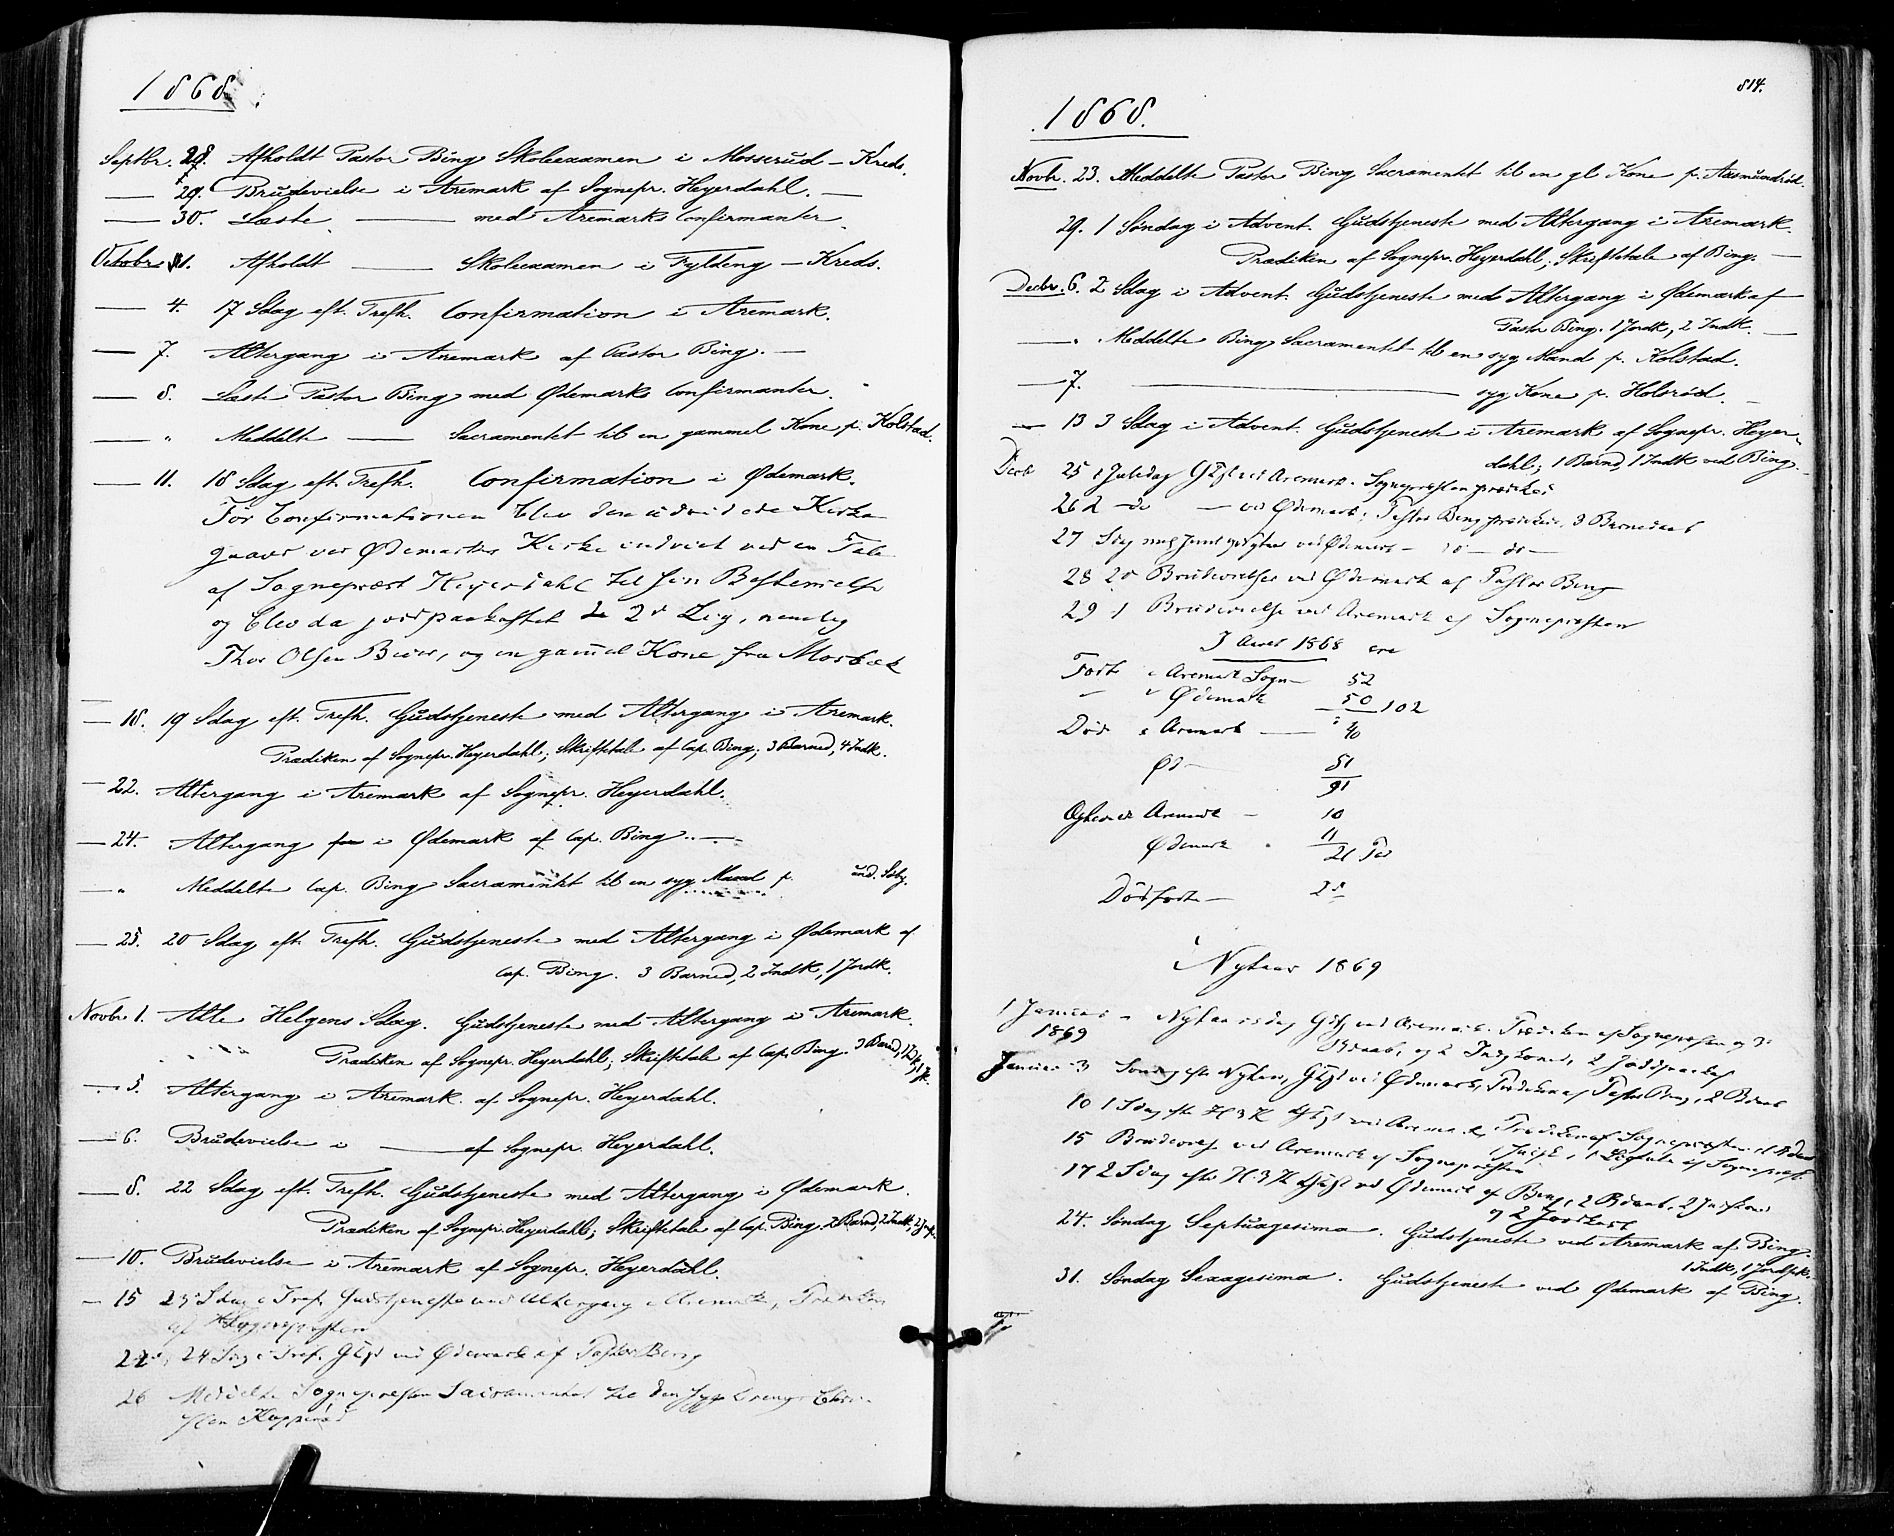 1868
Septbr. 28. Afholdt Pastor Bing Skoleexamen i Mosserud-Kreds.
— 29. Brudevielse i Aremark af Sognepr. Heyerdahl. —
— 30. Læste — med Aremarks Confirmanter.
Octobr. 1. Afholdt — Skoleexamen i Fyldeng-Kreds.
— 4. 17 Sdag eft. Trefh. Confirmation i Aremark.
— 7. Altergang i Aremark af Pastor Bing. —
— 8. Læste Pastor Bing med Ødemarks Confirmanter.
— " Meddelte — Sacramentet til en gammel Kone p. Kolstad.
— 11. 18 Sdag eft. Trefh. Confirmation i Ødemark.
Før Confirmationen blev den udvidede Kirke
gaard ved Ødemarks Kirke indviet ved en Tale
af Sognepræst Heyerdahl til sin Bestemmelse
og blev da jordpaakastet de 2de Lig, nemlig
Thor Olsen, og en gam̄el Kone fra Mosbæk
— 18. 19 Sdag eft. Trefh. Gudstjeneste med Altergang i Aremark.
Prædiken af Sognepr. Heyerdahl; Skriftetale af Cap. Bing; 3 Barned, 4 Indk.
— 22. Altergang i Aremark af Sognepr. Heyerdahl.
— 24. Altergang i Ødemark af Cap. Bing. —
— " Meddelte Cap. Bing Sacramentet til en syg Mand p. und.
— 25. 20 Sdag eft. Trefh. Gudstjeneste med Altergang i Ødemark af
Cap. Bing. 3 Barned, 2 Indk, 1 Jordk.
Novbr. 1. Alle Helgens Sdag. Gudstjeneste med Altergang i Aremark.
Prædiken af Sognepr. Heyerdahl; Skriftetale af Cap. Bing. 3 Barned,
— 5. Altergang i Aremark af Sognepr. Heyerdahl.
— 6. Brudevielse i — af Sognepr. Heyerdahl.
— 8. 22 Sdag eft. Trefh. Gudstjeneste med Altergang i Ødemark.
Prædiken af Sognepr. Heyerdahl; Skriftetale af Cap. Bing. 2 Barned, 2 Indk,
— 10. Brudevielse i Aremark af Sognepr. Heyerdahl.
— 15 23 Sdag e Tref. Gudstjeneste med Altergang i Aremark,
af Sognepræsten
22 24 Sdag e Tref. Gtjst ved Ødemark af Pastor Bing
26 Meddelte Sognepræsten Sacramentet til den syge Dreng
814.
1868.
Novbr. 23. Meddelte Pastor Bing Sacramentet til en gl Kone p. Aasmundrød.
29. 1 Søndag i Advent. Gudstjeneste med Altergang i Aremark.
Prædiken af Sognepr. Heyerdahl; Skriftetale af Bing. —
Decbr. 6. 2 Sdag i Advent. Gudstjeneste med Altergang i Ødemark af
Pastor Bing. 1 Jordk, 2 Indk. —
— " Meddelte Bing Sacramentet til en syg Mand p. Kolstad.
— 7. — syg Kone p. Holsrød. —
— 13 3 Sdag i Advent. Gudstjeneste i Aremark af Sognepr. Heyer-
dahl; 1 Barned, 1 Indk ved Bing. —
Decb 25 1 Juledag Gtjst ved Aremark. Sognepræsten prædiker
26 2 — do — ved Ødemark; Pastor Bing prædiker. 3 Barnedaab
27 Sdag ved Ødemark — do — do —
28 2de Brudevielser ved Ødemark af Pastor Bing
29 1 Brudevielse ved Aremark af Sognepræsten
I Aaret 1868 ere
Fødte i Aremark Sogn — 52
" i Ødemark 50 102
Døde i Aremark — 40
Ød — 51
91
Ægteviede Aremark — 10
Ødemark 11
21 Par
Dødfødte —
Nytaar 1869
1 Januar — Nytaarsdag Gtj ved Aremark. Prædiken af Sognepræsten og 3
1869 Bdaab, og 2 Indgkoner, 2 Jordpaakas
Januar 3 Søndag efter Nytaar, Gtjst ved Ødemark, Prædiken af Pastor Bing, 2 Bdaab
10 1 Sdag efter H 3 K Gtjst ved Aremark, Prædiken af Sognepræsten
15 Brudevielse ved Aremark af Sognepræsten
17 2 Sdag efter H. 3 K Gtjst ved Ødemark af Bing, 2 Bdaab,
og 2 Jordkast
24. Søndag Septuagesima. Gudstjeneste ved Aremark af Bing.
1 Indk, 1 Jordpk.
31. Søndag Sexagesima. Gudstjeneste ved Ødemark af Bing.